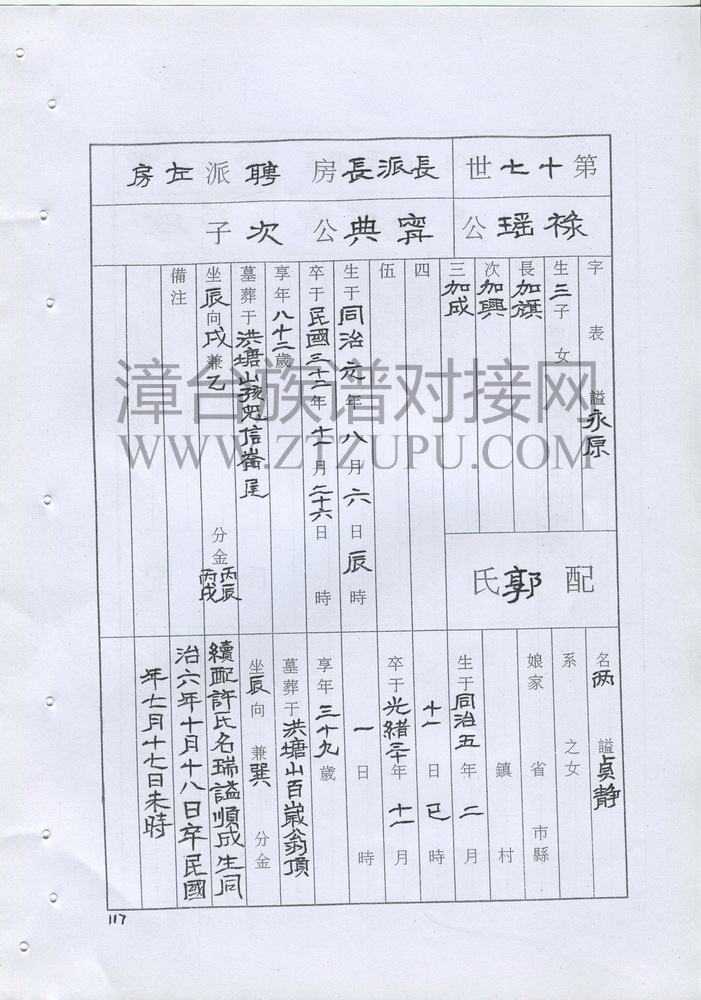 第十七世
長派長房 聘派左房
祿瑶公
寗典公次子
字表 謚永原
生三子女
長加旗
次加興
三加成
四
伍
生于同治元年八月六日辰時
卒于民國三十二年十一月二十六日 時
享年八十二歲
墓葬于洪塘山孩兜信崙尾
坐辰向戌兼乙 分金丙辰丙戌
備注
配郭氏
名兩 謚貞靜
系 之女
娘家 省 市縣
鎮 村
生于同治五年二月
十一日巳時
卒于光緒三十年十一月
一日 時
享年三十九歲
墓葬于洪塘山百歲翁頂
坐辰向 兼巽 分金
續配許氏名瑞謚順成生同
治六年十月十八日卒民國
年七月十七日未時
117
漳台族谱对接网
WWW.ZTZUPU.COM